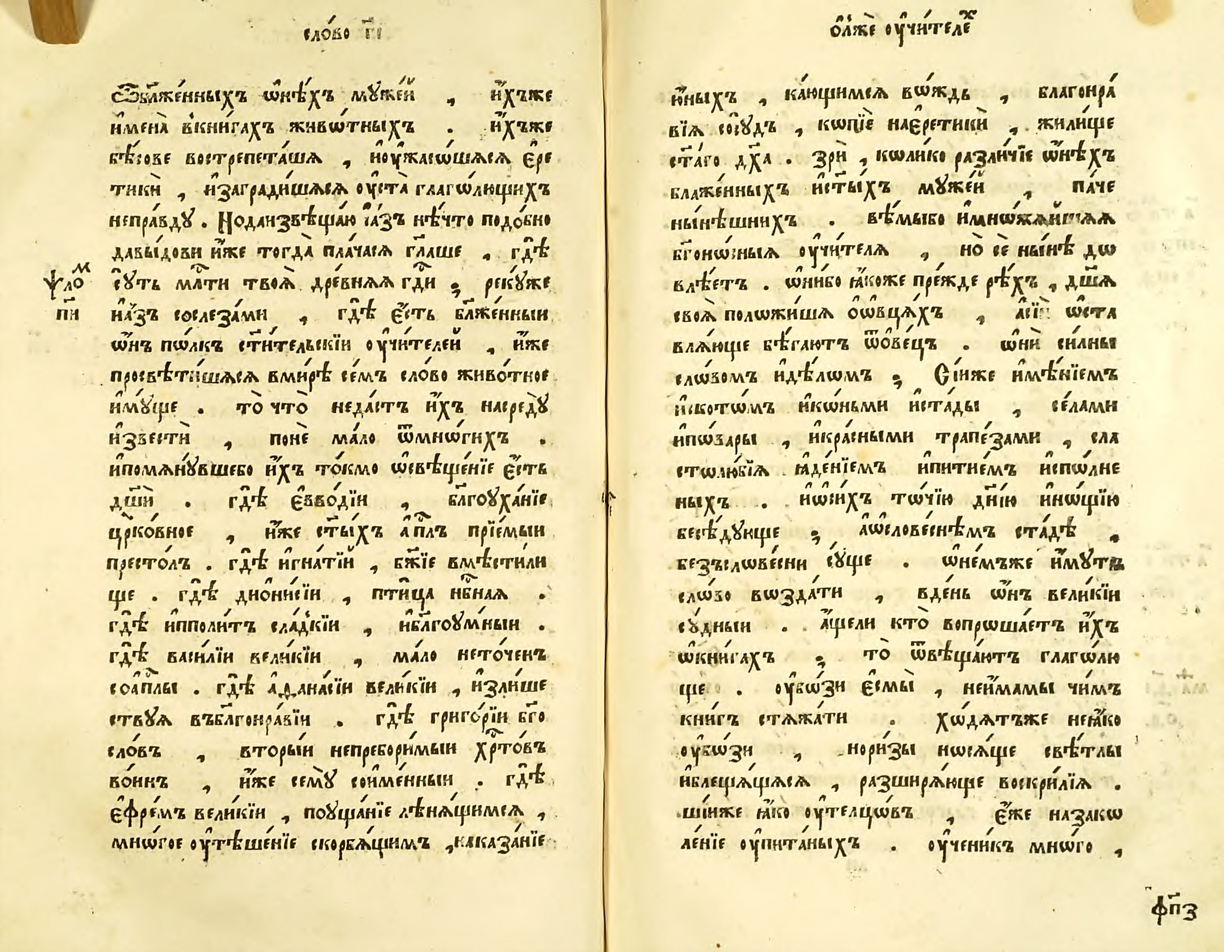 сло́во гі
Ѿблаже́нныхъ ѡ҆нѣ́хъ мꙋже́й , и҆́хъже
и҆мена̀ в̾кни́гахъ живѡ́тныхъ . и҆́хъже
бѣ́сове вострепета́шѧ , ноу҆жасѡ́шѧсѧ є҆ре
тикѝ , и҆заградѝшѧсѧ оу҆ста̀ глагѡ́лющихъ
непра́вдꙋ . Но да извѣщаю і҆а́зъ нѣ́что подобно
давы́дови и҆́же тогда̀ пла́часѧ гл҃аше , гдѣ̀
сꙋ́ть мл҇ти твоѧ̀ дре́внѧѧ гд҇и ; рекꙋ́же
ѱло́м
пи
и҆а́зъ сослеза́ми , гдѣ̀ є҆́сть бл҃же́нныи
ѡ҆́нъ пѡ́лкъ ст҃и́тельскїи оу҆чи́телей , и҆́же
просвѣти́шѧсѧ вми́рѣ се́мъ сло́во живо́тное
и҆мꙋ́ще . то̀ что̀ неда́стъ и҆́хъ насредꙋ̀
и҆звестѝ , понѐ ма́ло ѿмнѡ́гихъ .
и҆помѧнꙋ́вшебо и҆́хъ то́кмо ѡ҆свѣще́нїе є҆́сть
дш҃и . гдѣ̀ є҆ѵво́дїи , бл҃гоуха́нїе
цр҃ко́вное , и҆́же ст҃ы́хъ а҆п҇лъ прїе́мыи
престо́лъ . гдѣ̀ и҆гна́тїй , бж҃їе вмѣсти́ли
ще . гдѣ̀ дионисїи , пти́ца нб҇наѧ .
гдѣ̀ и҆пполи́тъ сла́дкїи , и҆благоу́мныи .
гдѣ̀ васи́лїи вели́кїи , ма́ло нето́ченъ
соа҆п҇лы . гдѣ̀ а҆ѳана́сїи вели́кїи , и҆зли́ше
ствꙋѧ въблагонра́вїи . гдѣ̀ григо́рїи бг҃о
сло́въ , вторы́и непребори́мыи хр҇то́въ
во́инъ , и҆́же семꙋ̀ соиме́нныи . гдѣ̀
є҆фре́мъ вели́кїи , поꙋща́нїе лѣнѧ́щимсѧ ,
мнѡ́гое оу҆тѣше́нїе скорбѧ́щимъ , наказа́нїе
ѡ҆лжѐ оу҆чи́телех
ю҆́ныхъ , ка́ющимсѧ вѡ́ждь , благонра́
вїѧ сосꙋ́дъ , кѡпїе наеретикѝ , жили́ще
ст҃а́го дх҃а . зрѝ , кѡли́ко разли́чїе ѡ҆нѣ́хъ
блаже́нныхъ и҆ст҃ы́хъ мꙋже́й , па́че
ны́нѣшнихъ . вѣ́мыбо и҆мнѡжа́йшаѧ
бг҃онѡ́сныѧ оу҆чи́телѧ , но сѐ ны́нѣ дѡ
влѣ́етъ . ѡ҆ни́бо ꙗ҆́коже пре́жде рѣ́хъ , дш҃а
своѧ̀ положи́шѧ оѡвца́хъ , а҆сїѝ ѡ҆ста
влѧ́юще бѣ́гаютъ ѿове́цъ . ѡ҆нѝ си́лны
сло́вомъ и҆дѣ́лѡмъ ; Сі́иже и҆мѣ́нїемъ
и҆скотѡ́мъ и҆кѡ́ньми и҆ста́ды , се́лами
и҆пѡ́вары , и҆кра́сными трапе́зами , сла
столю́бїѧ . ꙗ҆де́нїемъ и҆питїе́мъ и҆спо́лне
ныхъ . и҆ѡ҆си́хъ тѡ́чїю дн҃їю и҆нѡ́щїю
бесѣ́дꙋюще ; а҆ѡслове́снѣмъ ста́дѣ ,
безъслове́сни сꙋ́ще . ѡ҆не́мъже и҆́мꙋтъ
сло́во воздати , вде́нь ѡ҆́нъ вели́кїи
сꙋ́дныи . а҆́щели кто̀ вопроша́етъ и҆́хъ
ѡ҆кни́гахъ ; то̀ ѿвѣща́ютъ глаго́лю
ще . оу҆бо́зи є҆смы̀ , неи҆́мамы чи́мъ
кни́гъ стѧжа́ти . хо́дѧтъже неꙗ҆́ко
оу҆бо́зи , но ри́зы носѧ́ще свѣ́тлы
и҆блеща́щаѧсѧ , разширѧ́юще воскри́лїѧ .
ши́иже ꙗ҆́ко оу҆телцѡ́въ , є҆́же назако
ле́нїе оу҆пита́ныхъ . оу҆чени́къ мно́го ,
фп҃з